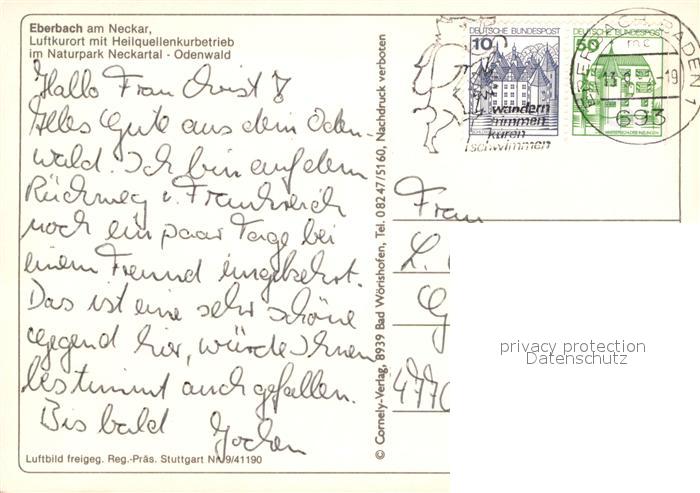 Eberbach am Neckar,
Luftkurort mit Heilquellenkurbetrieb
im Naturpark Neckartal - Odenwald
Hallo Frau
Alles Gute aus dem Oden-
wald. Ich bin auf dem
Rückweg v. Frankreich
noch ein paar Tage bei
einem Freund eingekehrt.
Das ist eine sehr schöne
Gegend hier, würde Ihnen
bestimmt auch gefallen.
Bis bald Jochen
Luftbild freigeg. Reg.-Präs. Stuttgart Nr. 9/41190
© Cornely-Verlag, 8939 Bad Wörishofen, Tel. 0 82 47/51 60, Nachdruck verboten
10 DEUTSCHE BUNDESPOST
DEUTSCHE BUNDESPOST
50
wandern
kuren
schwimmen
EBERBACH, BADEN
-19
693
Frau
L.
G
4770
privacy protection
Datenschutz